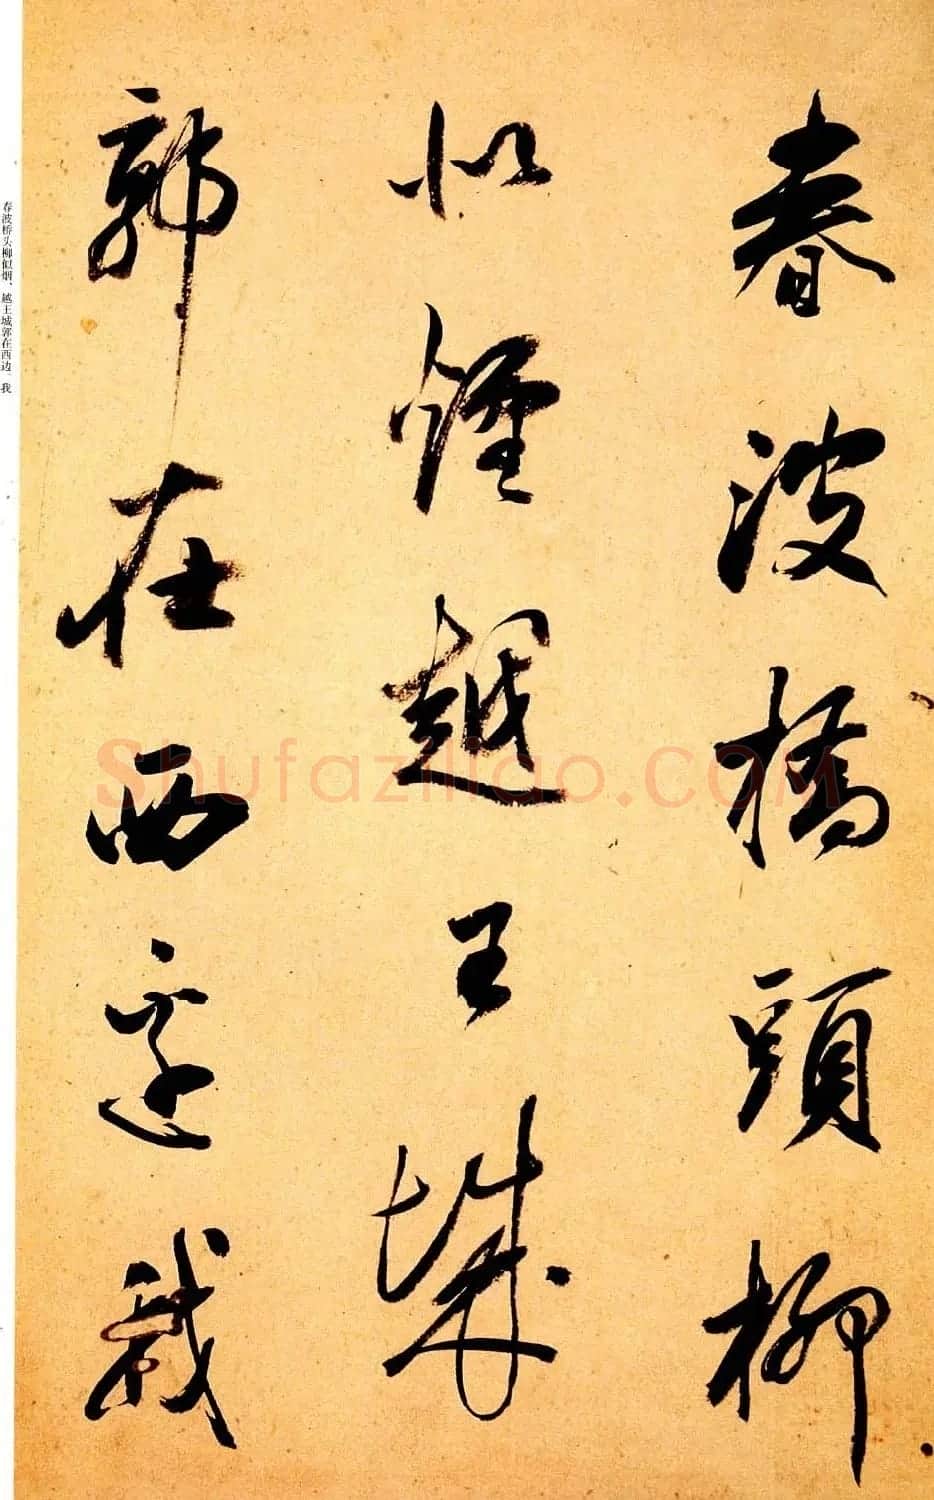 春波橋頭柳
似煙越王城
郭在西邊我
春波桥头柳似烟、越王城郭在西边、我
Shufaziliao.COM